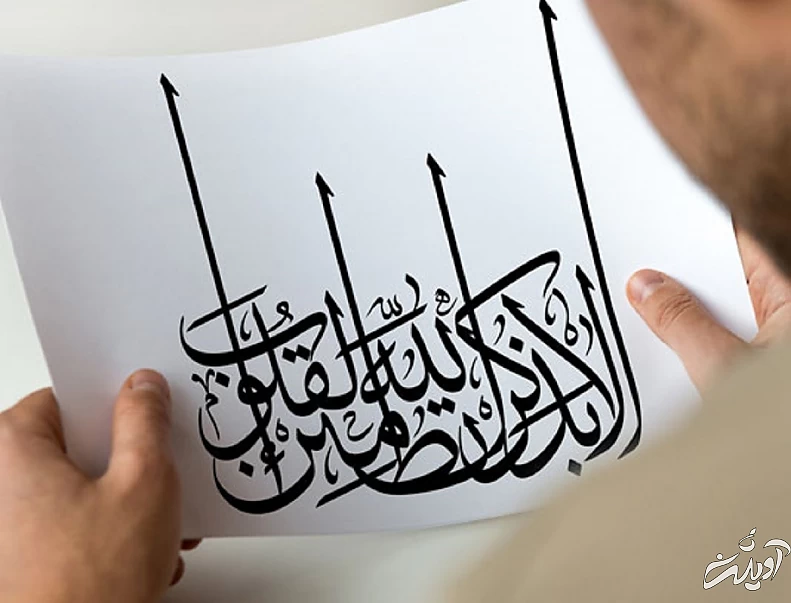 ألا بذكر الله تطمئن القلوب
آویشن